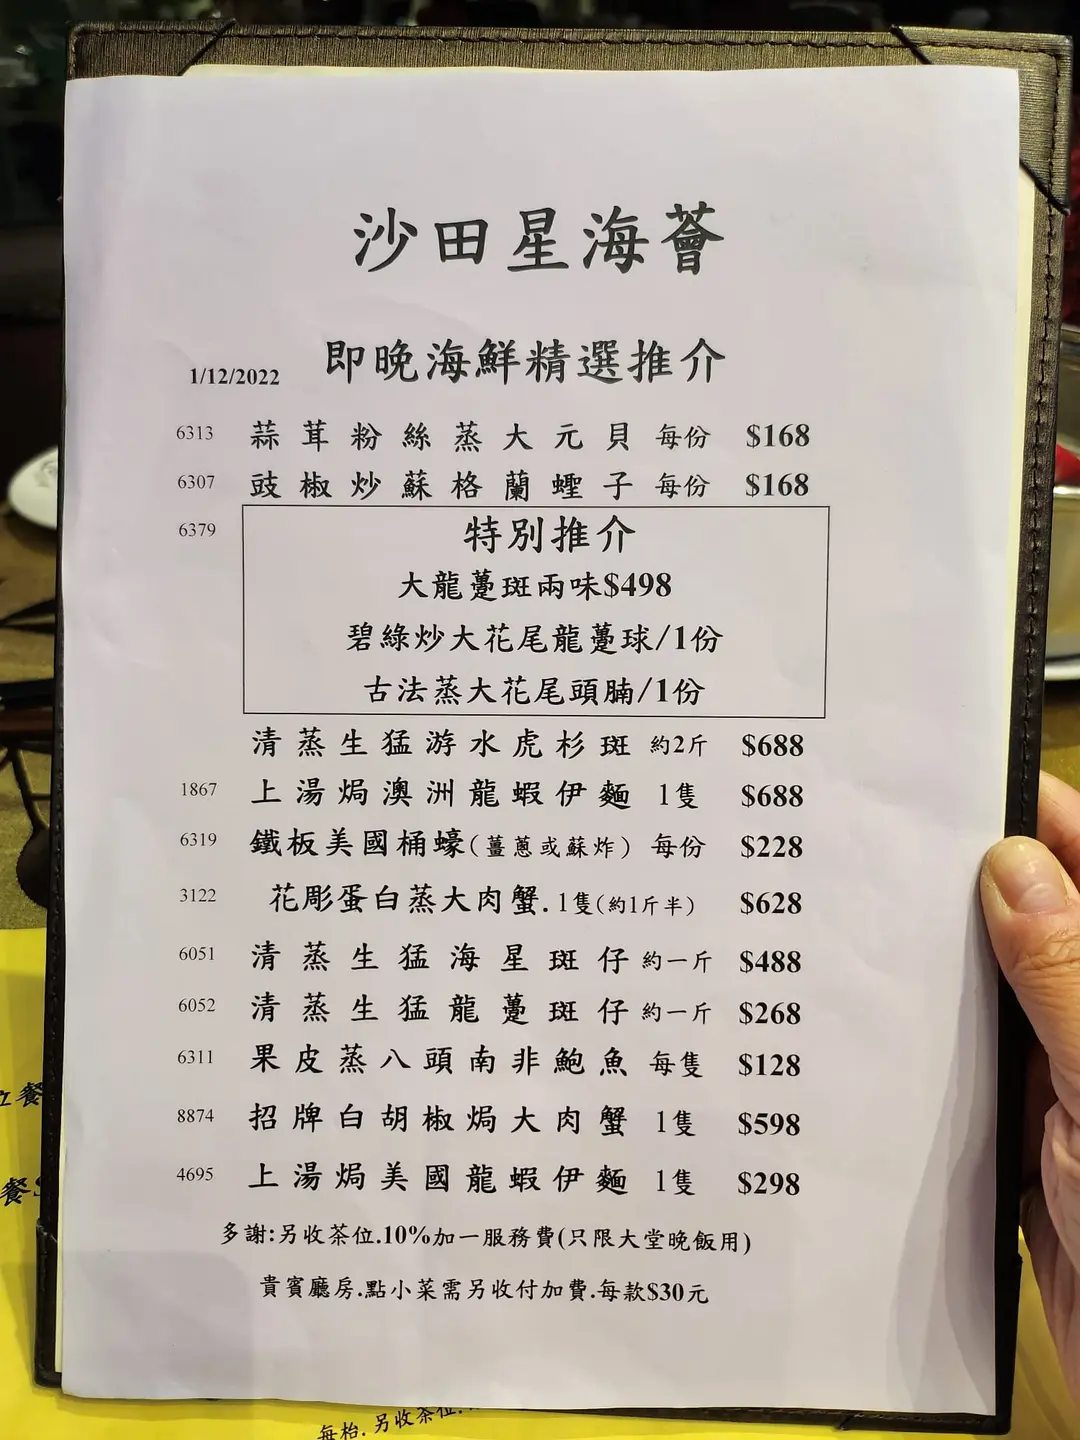 沙田星海薈
1/12/2022 即晚海鮮精選推介
6313 蒜茸粉絲蒸大元貝 每份 $168
6307 豉椒炒蘇格蘭蟶子 每份 $168
6379 特別推介
大龍躉斑兩味$498
碧綠炒大花尾龍躉球/1份
古法蒸大花尾頭腩/1份
清蒸生猛游水虎杉斑 約2斤 $688
1867 上湯焗澳洲龍蝦伊麵 1隻 $688
6319 鐵板美國桶蠔(薑蔥或蘇炸) 每份 $228
3122 花彫蛋白蒸大肉蟹.1隻(約1斤半) $628
6051 清蒸生猛海星斑仔 約一斤 $488
6052 清蒸生猛龍躉斑仔 約一斤 $268
6311 果皮蒸八頭南非鮑魚 每隻 $128
8874 招牌白胡椒焗大肉蟹 1隻 $598
4695 上湯焗美國龍蝦伊麵 1隻 $298
多謝:另收茶位.10%加一服務費(只限大堂晚飯用)
貴賓廳房.點小菜需另收付加費.每款$30元
餐
餐
每枱.另收茶位.